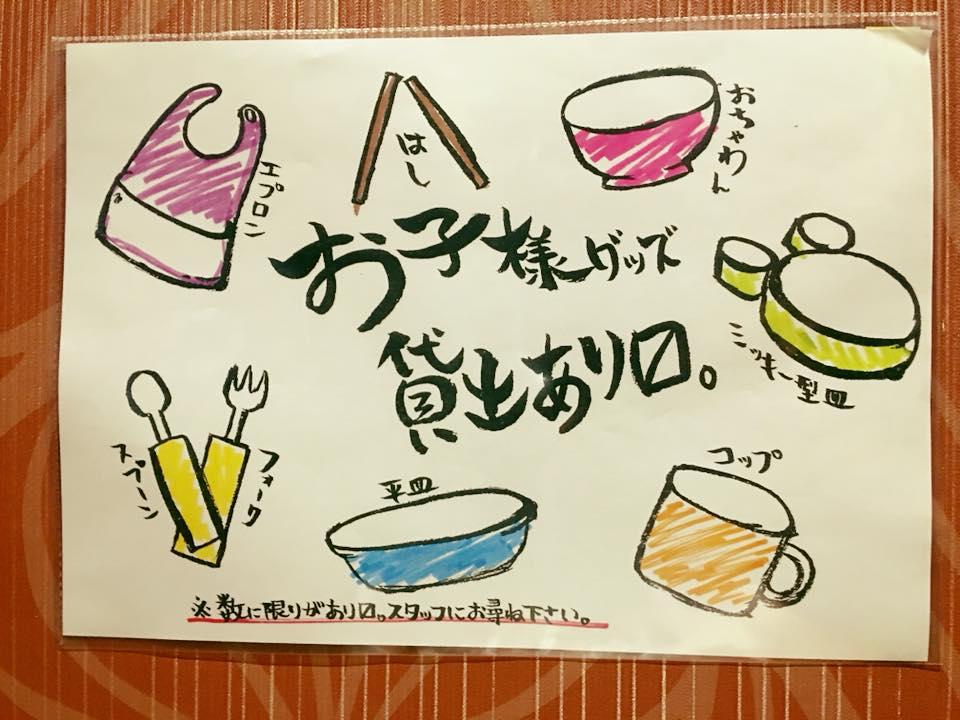 エプロン
はし
おちゃわん
お子様グッズ
貸出あり〼。
ミッキー型皿
スプーン
フォーク
平皿
コップ
※数に限りがあり〼。スタッフにお尋ね下さい。